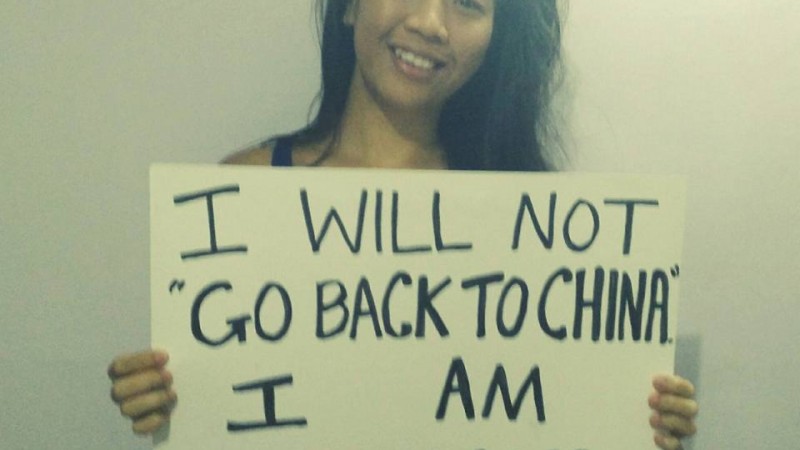 I WILL NOT
"GO BACK TO CHINA."
I AM